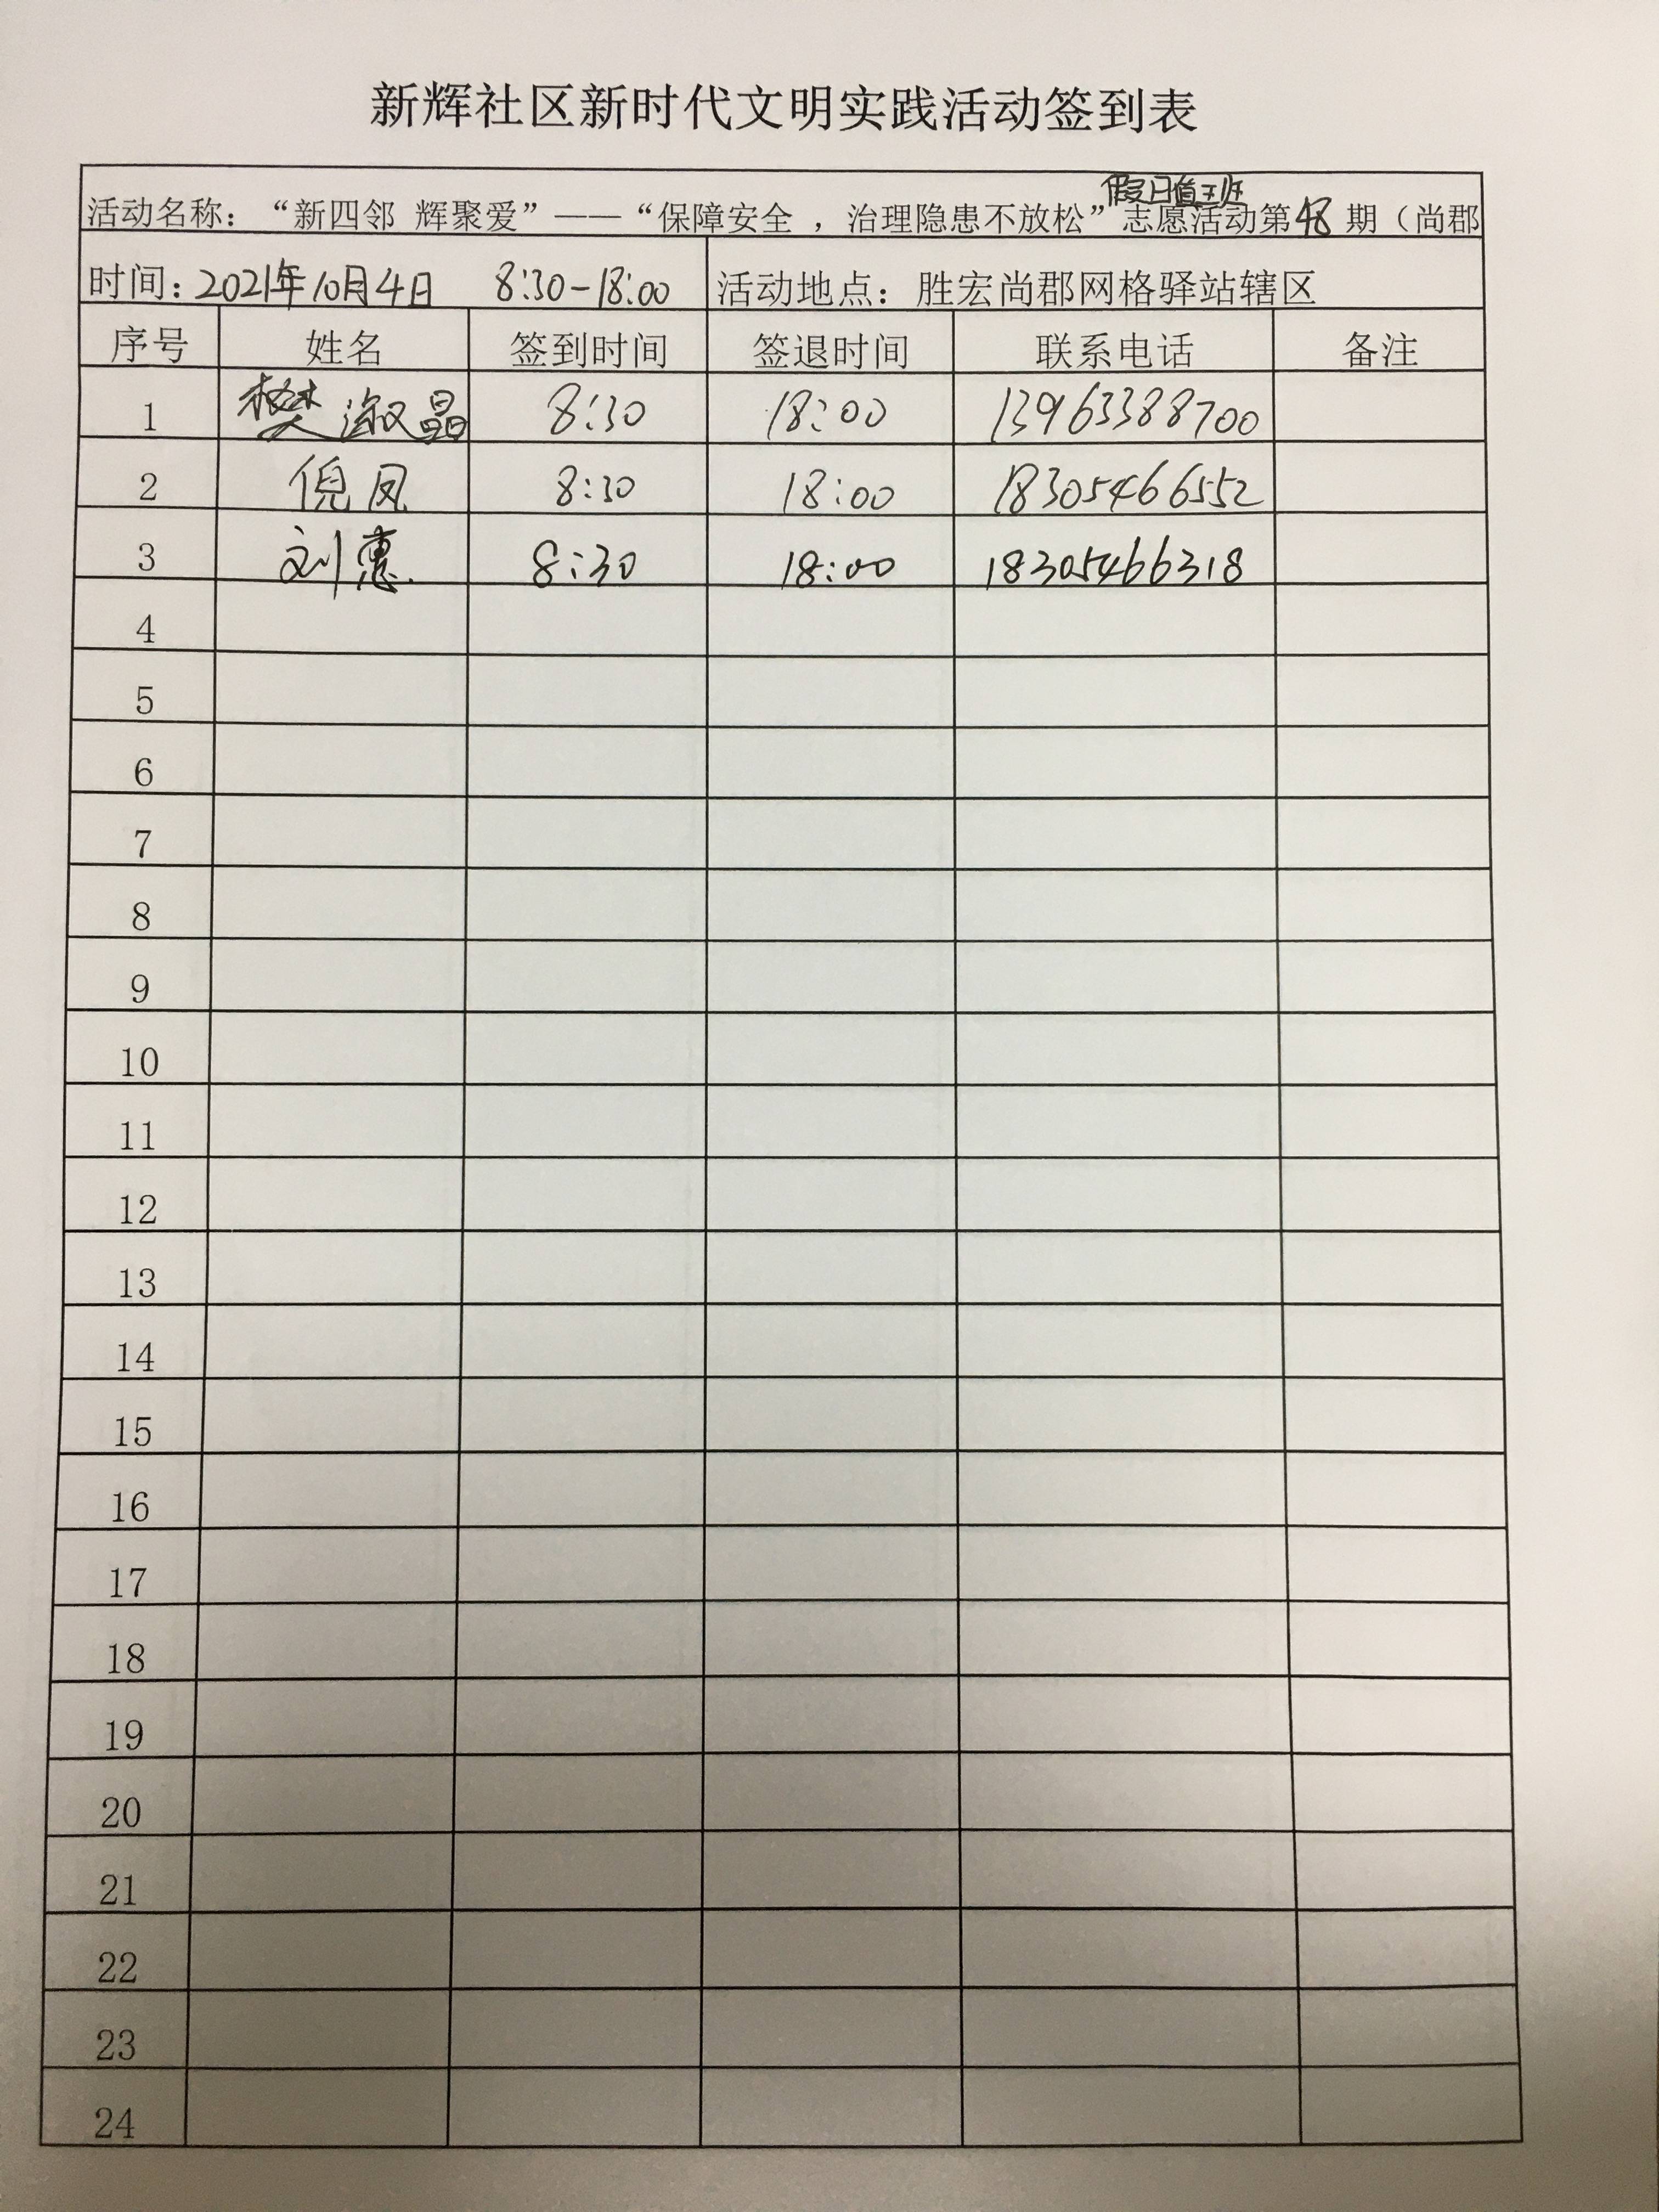 新辉社区新时代文明实践活动签到表
假日值班
活动名称：“新四邻 辉聚爱”——“保障安全 ，治理隐患不放松”志愿活动第48期（尚郡
时间：2021年10月4日 8:30-18:00 活动地点：胜宏尚郡网格驿站辖区
序号 姓名 签到时间 签退时间 联系电话 备注
1 樊淑晶 8:30 18:00 13963388700
2 倪凤 8:30 18:00 18305466552
3 刘惠 8:30 18:00 18305466318
4
5
6
7
8
9
10
11
12
13
14
15
16
17
18
19
20
21
22
23
24